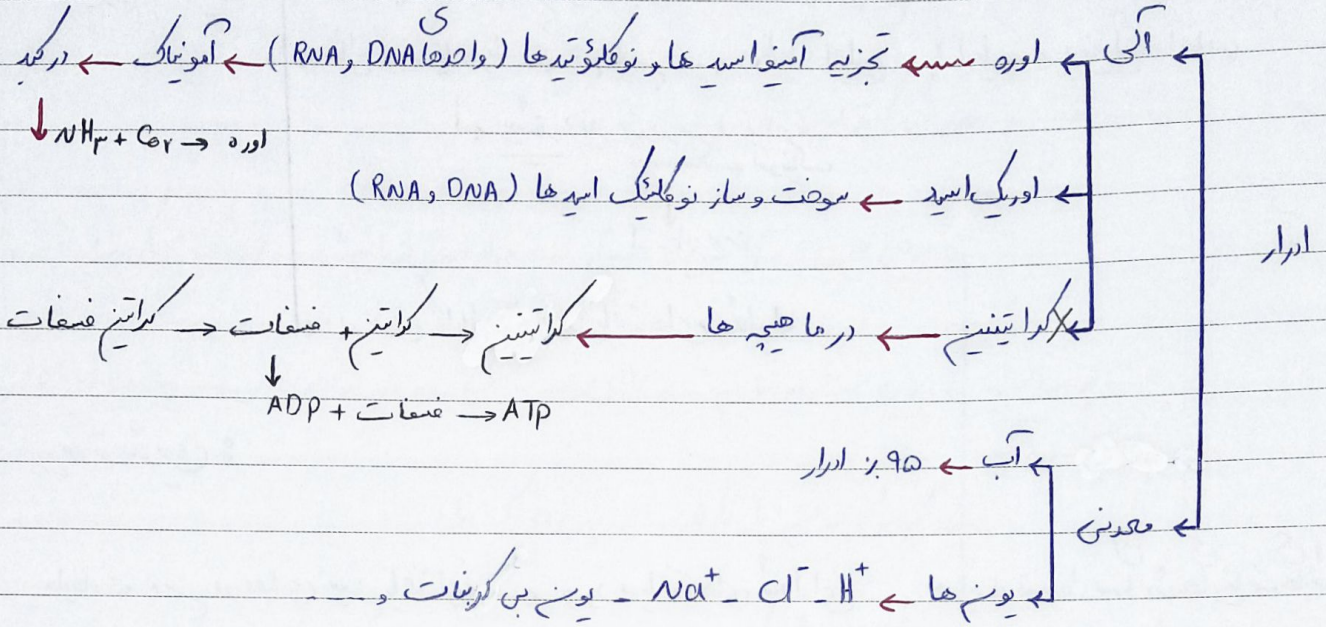 آلی ← اوره ← تجزیه آمینواسید ها و نوکلئوتیدها (واحدهای DNA و RNA) ← آمونیاک ← در کبد
↓ NH۳ + Co۲ → اوره
← اوریک اسید ← سوخت و ساز نوکلئیک اسید ها (DNA و RNA)
ادرار
← کراتینین ← در ماهیچه ها ← کراتین فسفات ← فسفات + کراتین ← کراتینین
↓
ADP + فسفات → ATP
← آب ← ۹۵٪ ادرار
معدنی
← یون ها ← Na⁺ - Cl⁻ - H⁺ - یون بی کربنات و .....